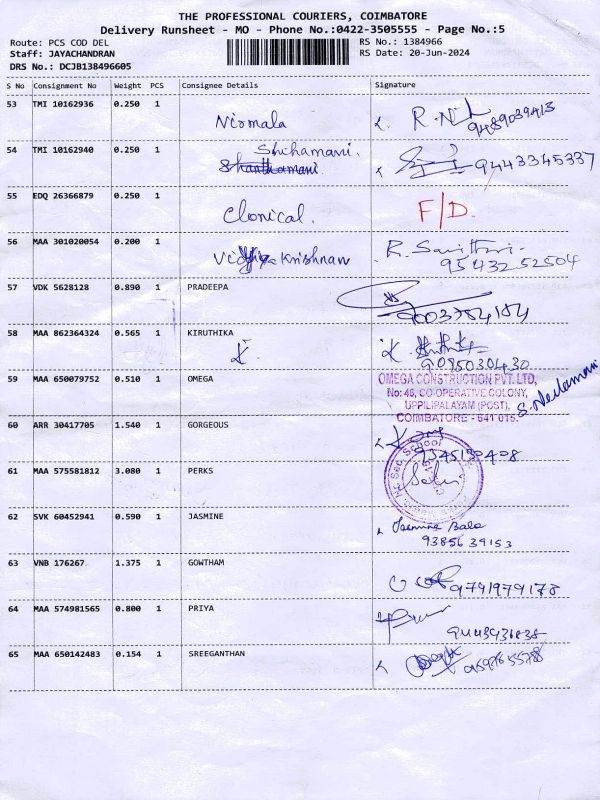 THE PROFESSIONAL COURIERS, COIMBATORE
Delivery Runsheet - MO - Phone No.:0422-3505555 - Page No.:5
Route: PCS COD DEL
Staff: JAYACHANDRAN
DRS No.: DCJB138496605
RS No.: 1384966
RS Date: 20-Jun-2024
S No Consignment No Weight PCS Consignee Details Signature
53 TMI 10162936 0.250 1 Nirmala
9489039413
54 TMI 10162940 0.250 1 Shihamani.
Shanthamani. 9443345337
55 EDQ 26366879 0.250 1 Clonical. F/D.
56 MAA 301020054 0.200 1 Vidhya Krishnan R. Savithri
95432 52504
57 VDK 5628128 0.890 1 PRADEEPA
9003754184
58 MAA 862364324 0.565 1 KIRUTHIKA
K. 9095030430
59 MAA 650079752 0.510 1 OMEGA OMEGA CONSTRUCTION PVT. LTD,
No: 46, CO-OPERATIVE COLONY,
UPPILIPALAYAM (POST),
COIMBATORE - 641 015.
S. Neelamani
60 ARR 30417705 1.540 1 GORGEOUS
9345130408
61 MAA 575581812 3.080 1 PERKS Hr. Sec. School
62 SVK 60452941 0.590 1 JASMINE Jasmine Bala
93856 39153
63 VNB 176267 1.375 1 GOWTHAM 9791979178
64 MAA 574981565 0.800 1 PRIYA
9443936838
65 MAA 650142483 0.154 1 SREEGANTHAN